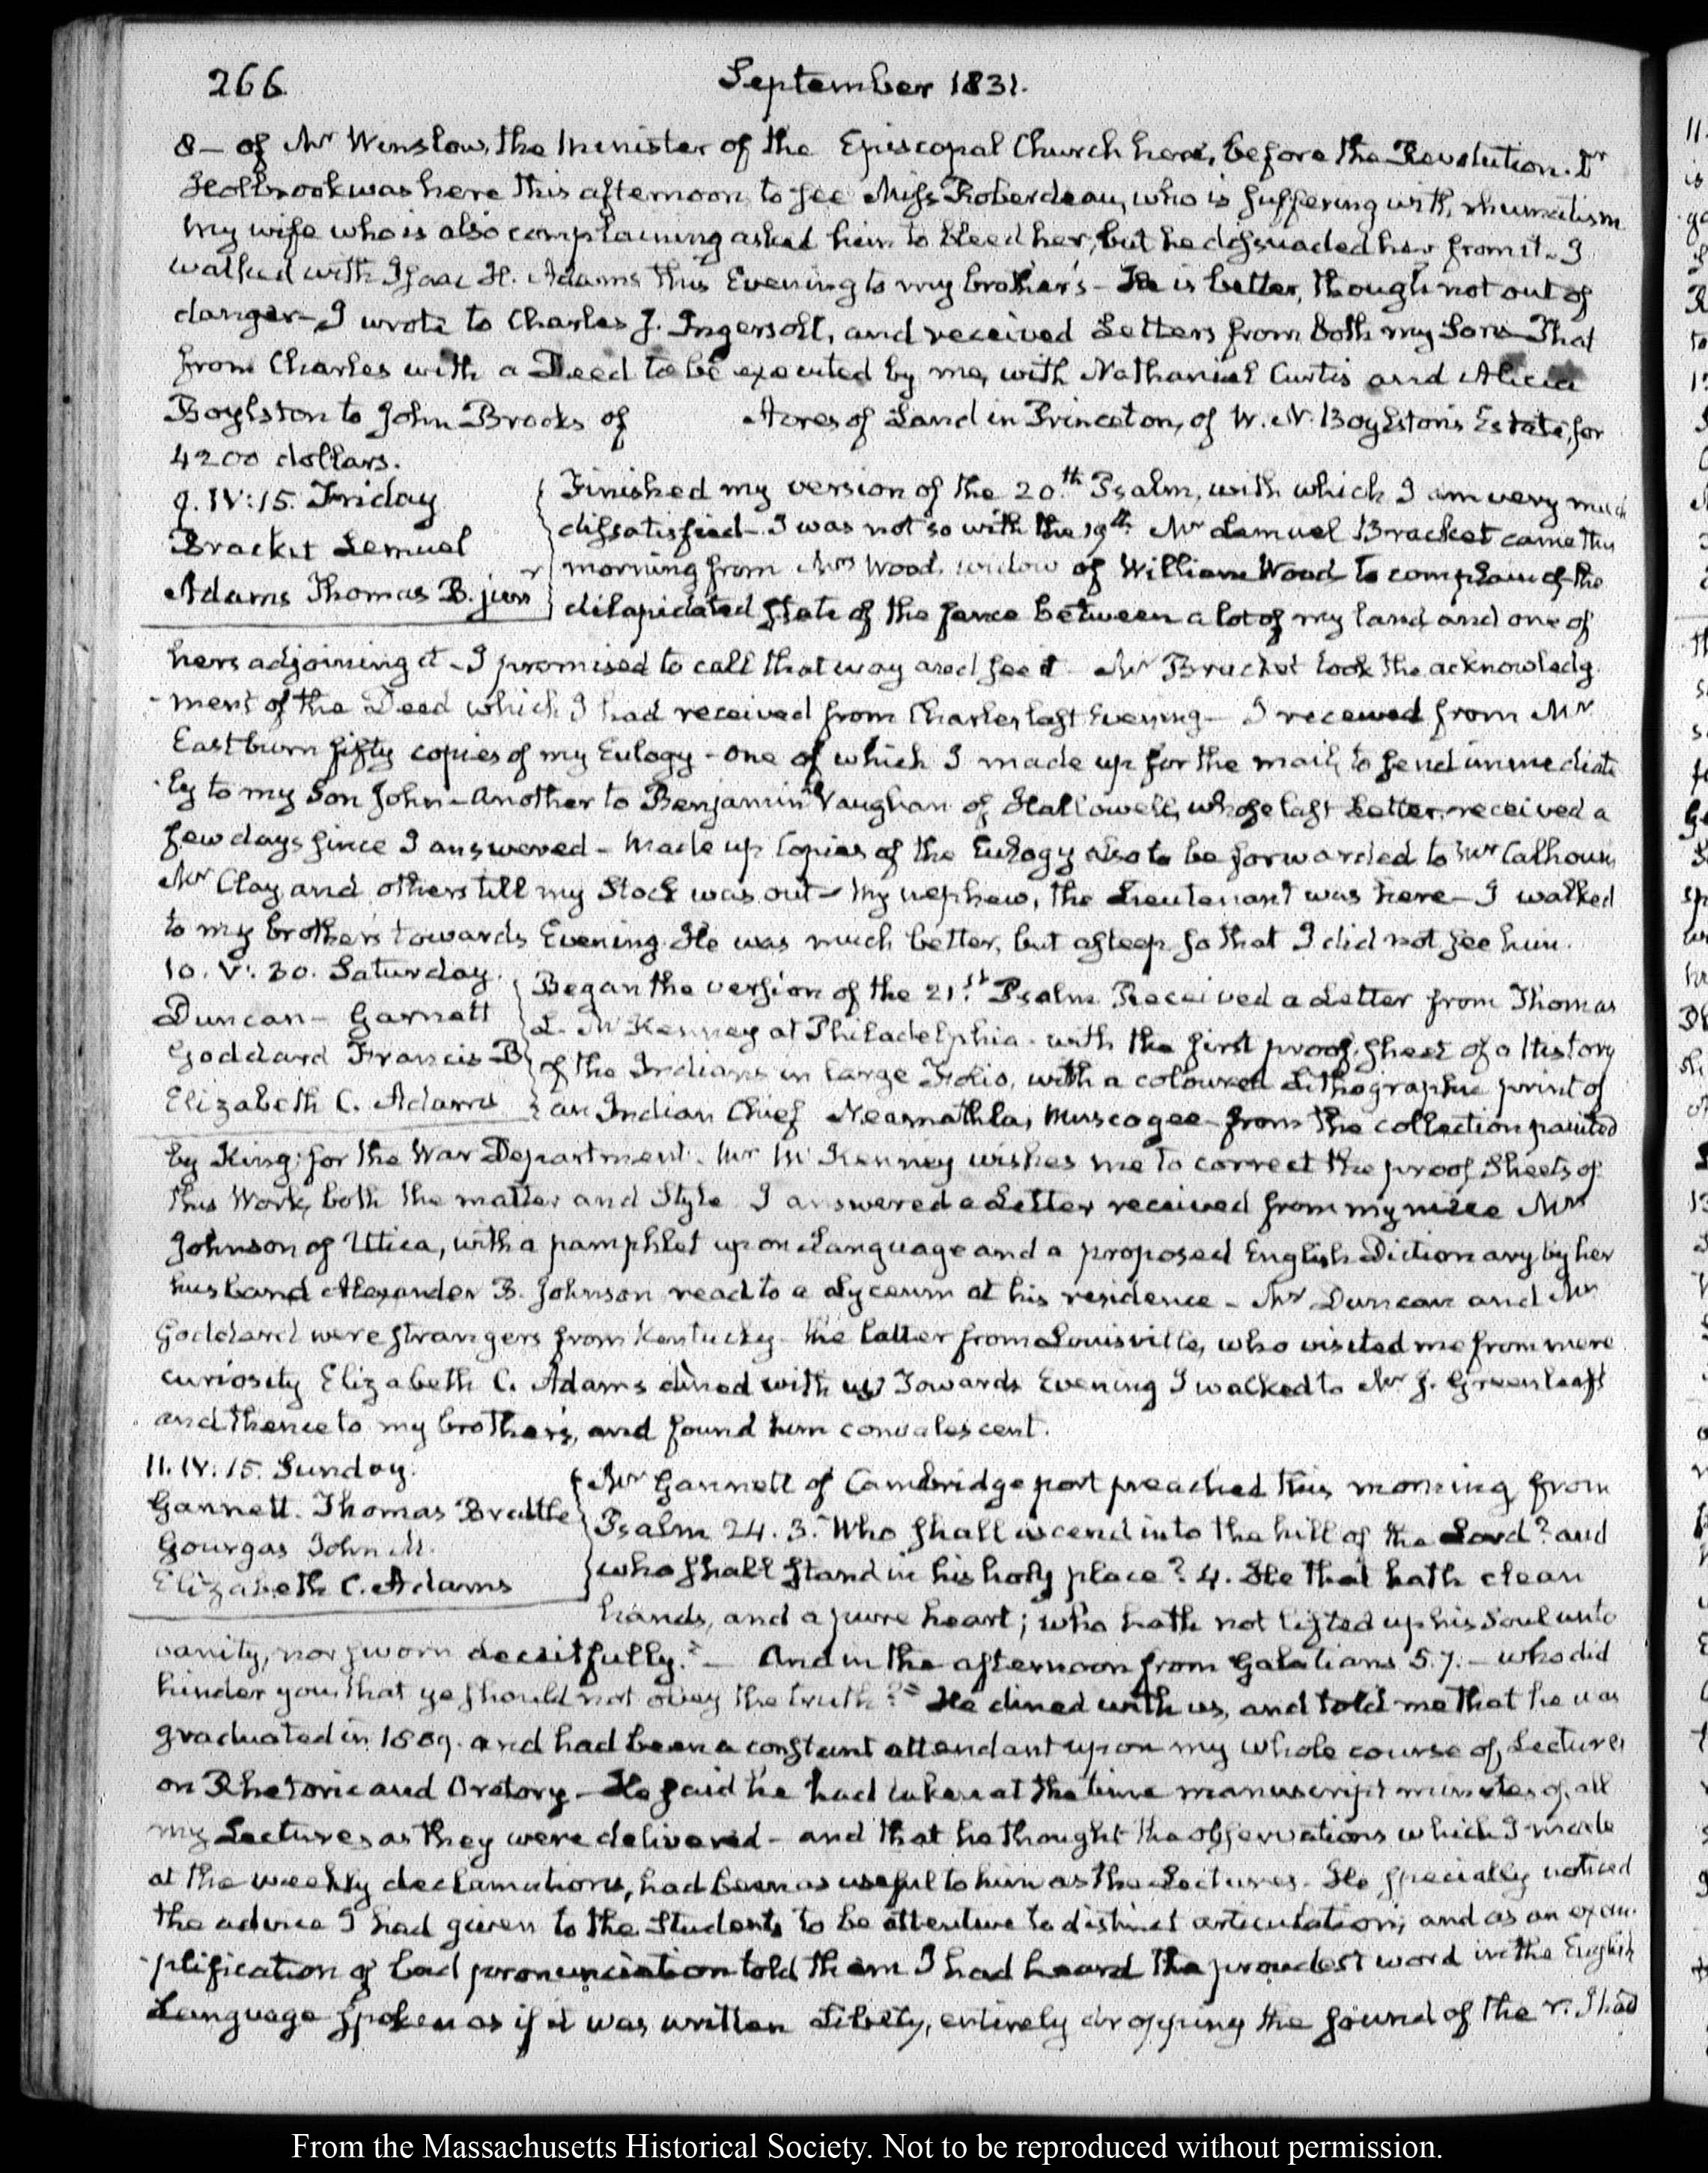 266
September 1831.
8 — of Mr Winslow, the Minister of the Episcopal Church here, before the Revolution. Dr
Holbrook was here this afternoon to see Miss Roberdeau, who is suffering with rhumatism
My wife who is also complaining asked him to bleed her, but he dissuaded her from it. I
walked with Isaac H. Adams this Evening to my brother's — He is better, though not out of
danger — I wrote to Charles J. Ingersoll, and received Letters from both my Sons — That
from Charles with a Deed to be executed by me, with Nathaniel Curtis and Alicia
Boylston to John Brooks of Acres of Land in Princeton, of W. N. Boylston's Estate, for
4200 dollars.
9. IV:15. Friday
Bracket Lemuel
Adams Thomas B. junr
Finished my version of the 20th Psalm, with which I am very much
dissatisfied — I was not so with the 19th Mr Lemuel Bracket came this
morning from Mrs Wood, widow of William Wood to complain of the
dilapidated state of the fence between a lot of my land and one of
hers adjoining it — I promised to call that way and see it — Mr Bracket took the acknowledg
-ment of the Deed which I had received from Charles last Evening — I received from Mr
Eastburn fifty copies of my Eulogy — One of which I made up for the mail, to send immediate
-ly to my Son John — Another to Benjamin Vaughan of Hallowell, whose last Letter, received a
few days since I answered — Made up Copies of the Eulogy also to be forwarded to Mr Calhoun,
Mr Clay and others till my Stock was out — My nephew, the Lieutenant was here — I walked
to my brother's towards Evening. He was much better, but asleep so that I did not see him.
10. V:30. Saturday.
Duncan — Garnett
Goddard Francis B
Elizabeth C. Adams
Began the version of the 21st Psalm. Received a Letter from Thomas
L. McKenney at Philadelphia. with the first proof sheet of a History
of the Indians in large Folio, with a coloured Lithographic print of
an Indian Chief Neamathla, Muscogee — from the collection painted
by King for the War Department. Mr McKenney wishes me to correct the proof Sheets of
this Work, both the matter and Style. I answered a Letter received from my niece Mrs
Johnson of Utica, with a pamphlet upon Language and a proposed English Dictionary by her
husband Alexander B. Johnson read to a Lyceum at his residence — Mr Duncan and Mr
Goddard were strangers from Kentucky — the latter from Louisville, who visited me from mere
curiosity Elizabeth C. Adams dined with us. Towards Evening I walked to Mr J. Greenleaf's
and thence to my brother's, and found him convalescent.
11. IV:15. Sunday.
Gannett. Thomas Brattle
Gourgas John M.
Elizabeth C. Adams
Mr Gannett of Cambridge port preached this morning from
Psalm 24. 3. "Who shall ascend into the hill of the Lord? and
who shall stand in his holy place? 4. He that hath clean
hands, and a pure heart; who hath not lifted up his Soul unto
vanity, nor sworn deceitfully." — And in the afternoon from Galatians 5.7. — who did
hinder you, that ye should not obey the truth?" He dined with us, and told me that he was
graduated in 1809. and had been a constant attendant upon my whole course of Lectures
on Rhetoric and Oratory — He said he had taken at the time manuscript minutes of all
my Lectures as they were delivered — and that he thought the observations which I made
at the weekly declamations, had been as useful to him as the Lectures. He specially noticed
the advice I had given to the Students to be attentive to distinct articulation; and as an exem-
-plification of bad pronunciation told them I had heard the proudest word in the English
Language spoken as if it was written Libety, entirely dropping the sound of the r. I had
From the Massachusetts Historical Society. Not to be reproduced without permission.